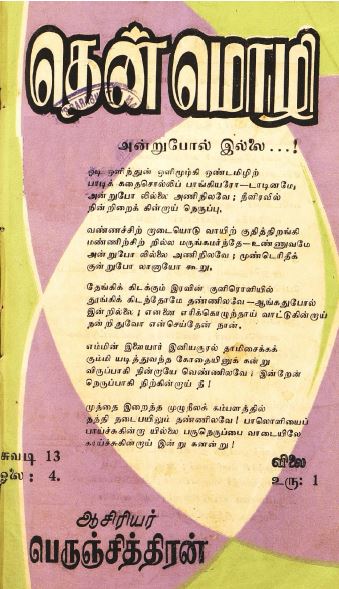 தென்மொழி
அன்றுபோல் இல்லை...!
ஓடி ஒளிந்துன் ஒளிமூழ்கி ஒண்டமிழிற்
பாடிக் கதைசொல்லிப் பாங்கியரோ—டாடினமே;
அன்றுபோ லில்லை அணிநிலவே; நீளிரவில்
நின்றிறைக் கின்றாய் நெருப்பு.
வண்ணச்சிற் றாடையொடு வாயிற் குதித்திறங்கி
மண்ணிற்சிற் றில்ல மருங்கமர்ந்தே—உண்ணுவமே
அன்றுபோ லில்லை அணிநிலவே; முண்டெரிதீக்
குன்றுபோ லானாயோ கூறு.
தேங்கிக் கிடக்கும் இரவின் குளிரொளியில்
தூங்கிக் கிடந்தோமே தண்ணிலவே—ஆங்கதுபோல்
இன்றில்லை; என்னை எரிக்கொழுந்தாய் வாட்டுகின்றாய்
நன்றிதுவோ என்செய்தேன் நான்.
எம்மின் இளையார் இனியகுரல் தாமிசைக்கக்
கும்மி யடித்துவந்த கோதையினுக் கன்று
விருப்பாகி நின்றாயே வெண்ணிலவே; இன்றேன்
நெருப்பாகி நிற்கின்றாய் நீ!
முத்தை இறைத்த முழுநீலக் கம்பளத்தில்
தத்தி நடைபயிலும் தண்ணிலவே! பாலொளியைப்
பாய்ச்சுகின்ற யில்லை பருநெருப்பை வாடையிலே
காய்ச்சுகின்றாய் இன்று கனன்று!
சுவடி 13
ஓலை: 4.
விலை
உரு: 1
ஆசிரியர்
பெருஞ்சித்திரன்